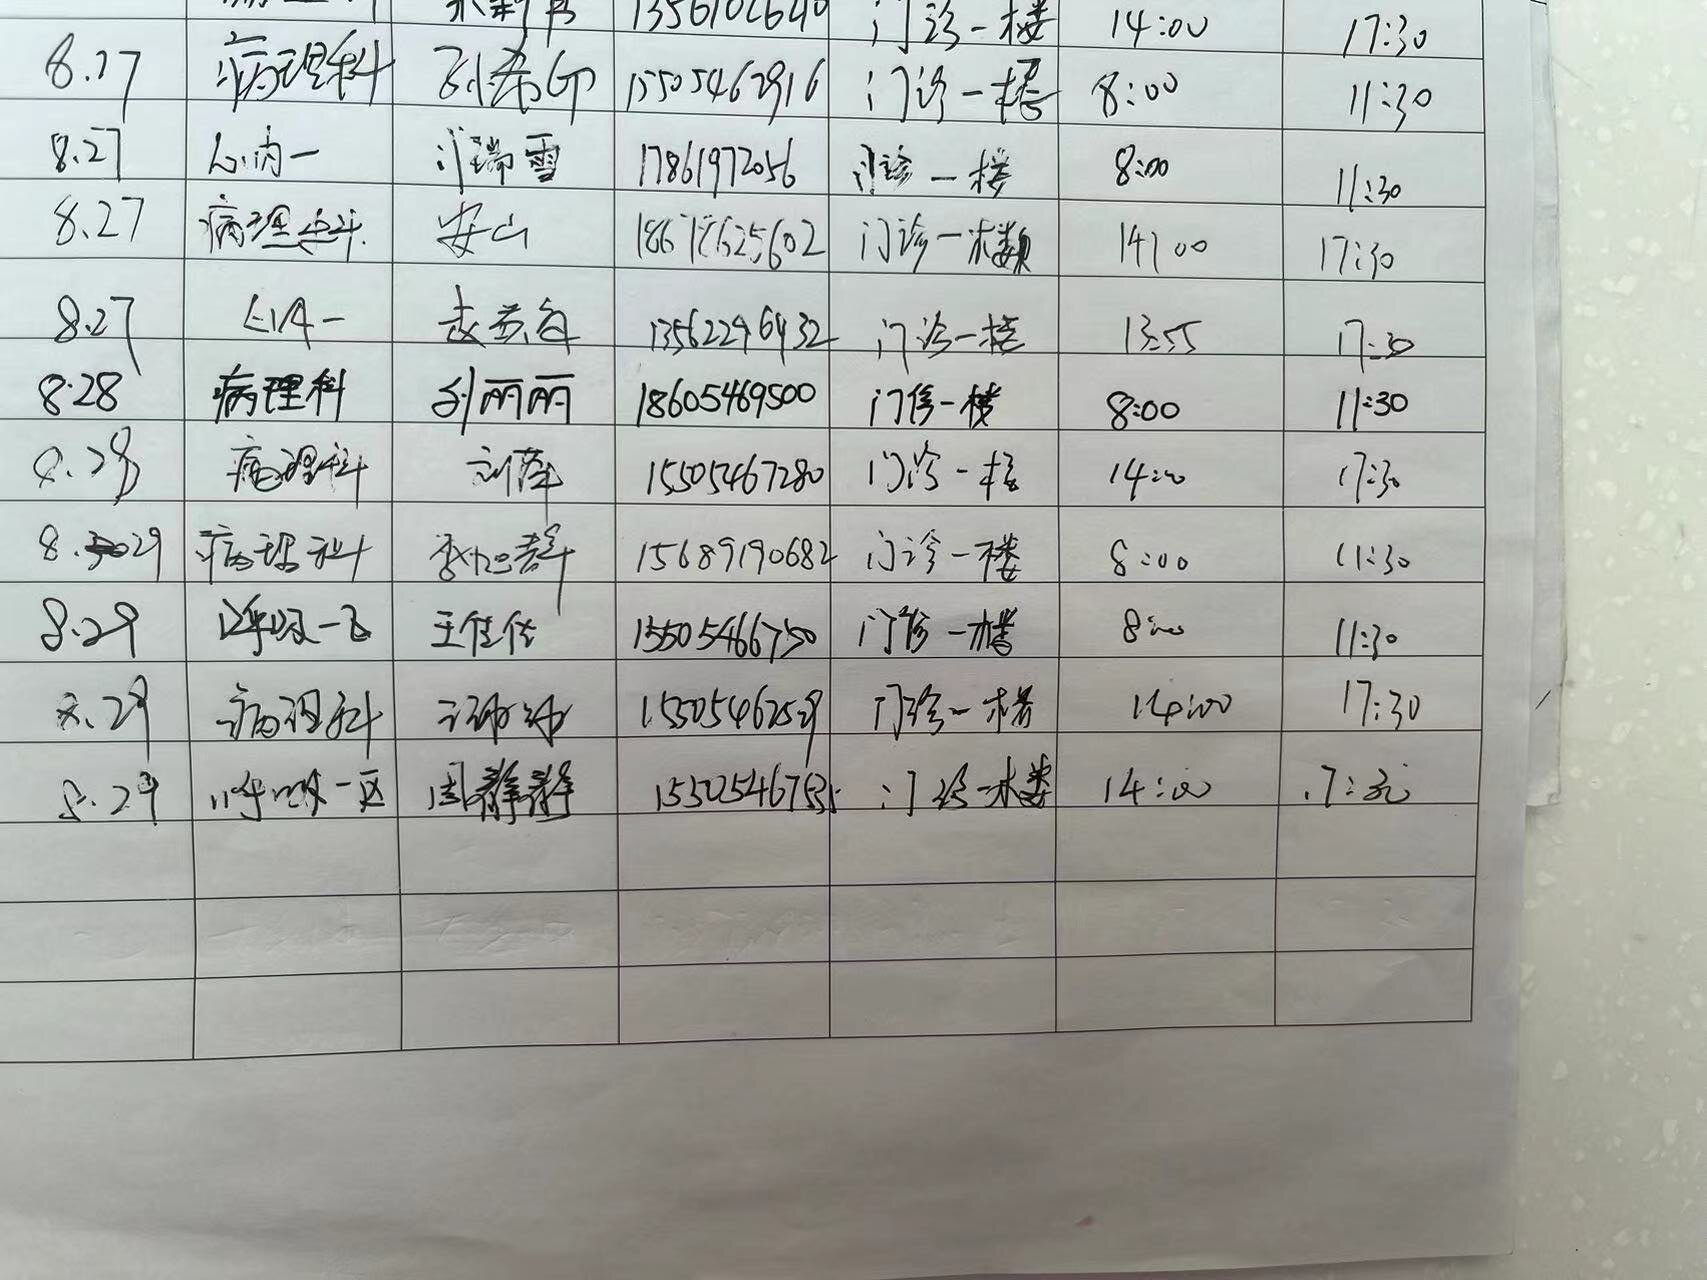 门诊一楼 14:00 17:30
8.27 病理科 15505462916 门诊一楼 8:00 11:30
8.27 心内一 瑞雪 17861972056 门诊一楼 8:00 11:30
8.27 病理科 安山 门诊一楼 14:00 17:30
8.27 心内一 13562296932 门诊一楼 13:55 17:30
8.28 病理科 刘丽丽 18605469500 门诊一楼 8:00 11:30
8.28 病理科 15505467280 门诊一楼 14:00 17:30
8.29 病理科 15689190682 门诊一楼 8:00 11:30
8.29 呼吸一区 王佳佳 15505466750 门诊一楼 8:00 11:30
8.29 病理科 门诊一楼 14:00 17:30
8.29 呼吸一区 周静静 门诊一楼 14:00 17:30